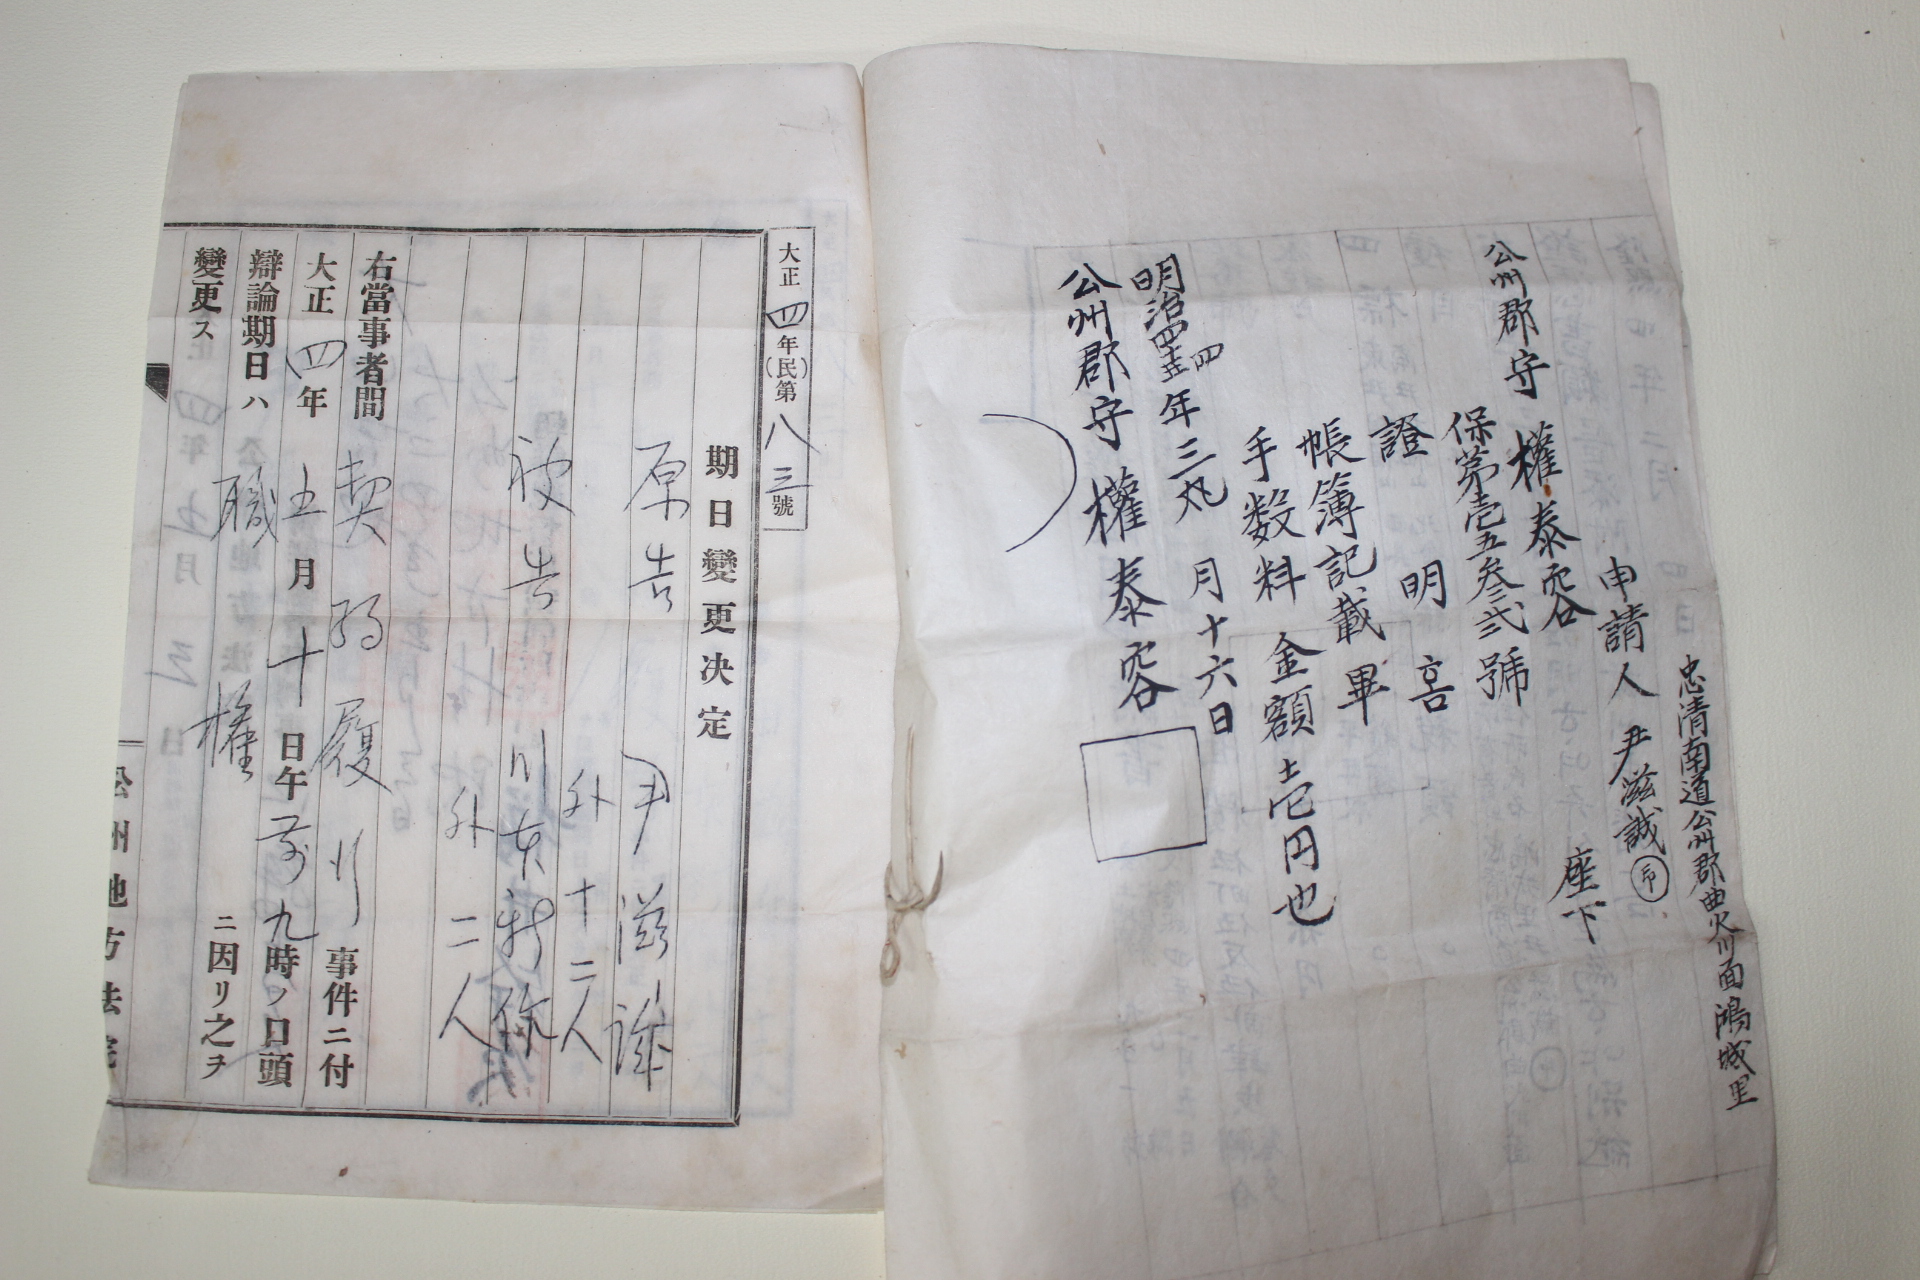 忠清南道公州郡曲火川面鴻城里
申請人 尹滋誠 印
公州郡守 權泰容 座下
保第壹五叁弐號
證明書
帳簿記載畢
手数料金額壱円也
明治四五四年三九月十六日
公州郡守 權泰容
大正四年(民)第八三號
期日變更決定
原告 尹滋誠
外十二人
被告
外二人
右當事者間 事件ニ付
大正四年五月十日午前九時ノ口頭
辯論期日ハ職權ニ因リ之ヲ
變更ス
公州地方法院